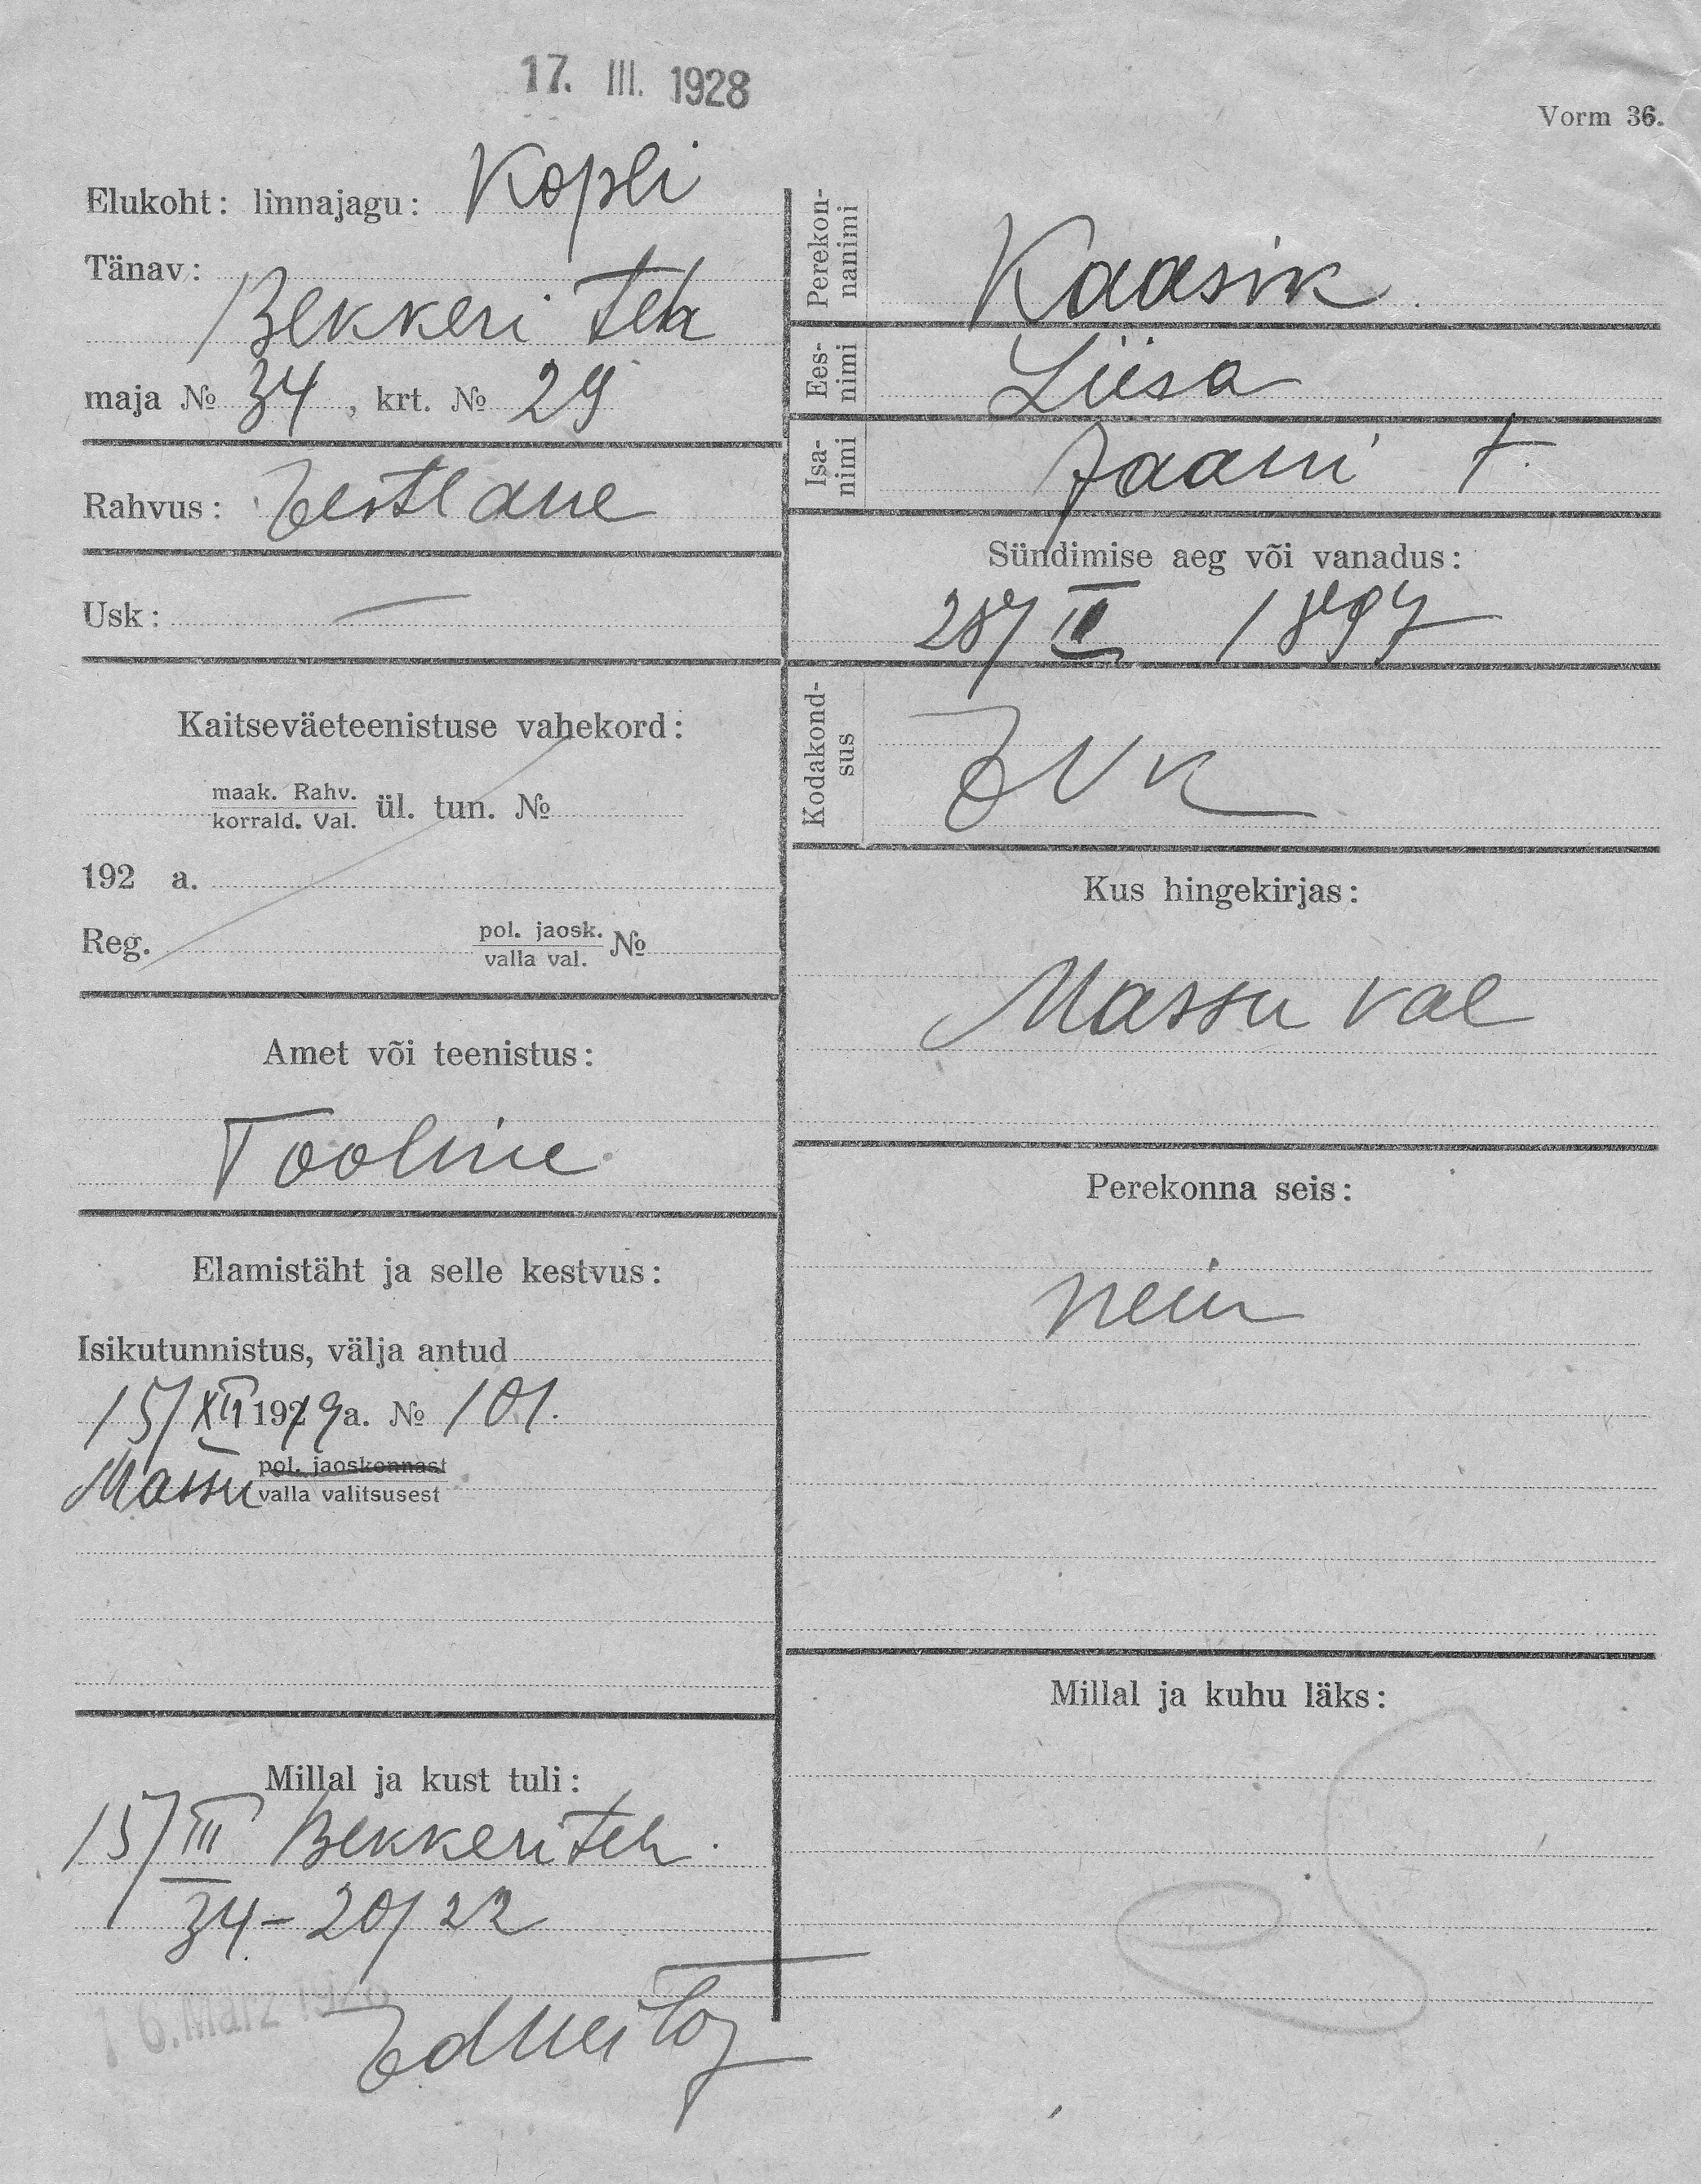 17. III. 1928
Vorm 36.
Elukoht: linnajagu: Kopli
Tänav:
Bekkeri teh
maja № 34, krt. № 29
Rahvus: Eestlane
Usk: —
Kaitseväeteenistuse vahekord:
maak. Rahv.
korrald. Val. ül. tun. №
192 a.
Reg. pol. jaosk. №
valla val.
Amet või teenistus:
Tooline
Elamistäht ja selle kestvus:
Isikutunnistus, välja antud
15/XII 1919 a. № 101.
Massu pol. jaoskonnast
valla valitsusest
Millal ja kust tuli:
15/III Bekkeri teh.
34-20/22
16. März 1928
Perekon-
nanimi
Kaasik
Ees-
nimi
Liisa
Isa-
nimi
Jaani t.
Sündimise aeg või vanadus:
28/ 1897
Kodakond-
sus
EVk
Kus hingekirjas:
Massu val
Perekonna seis:
neiu
Millal ja kuhu läks: